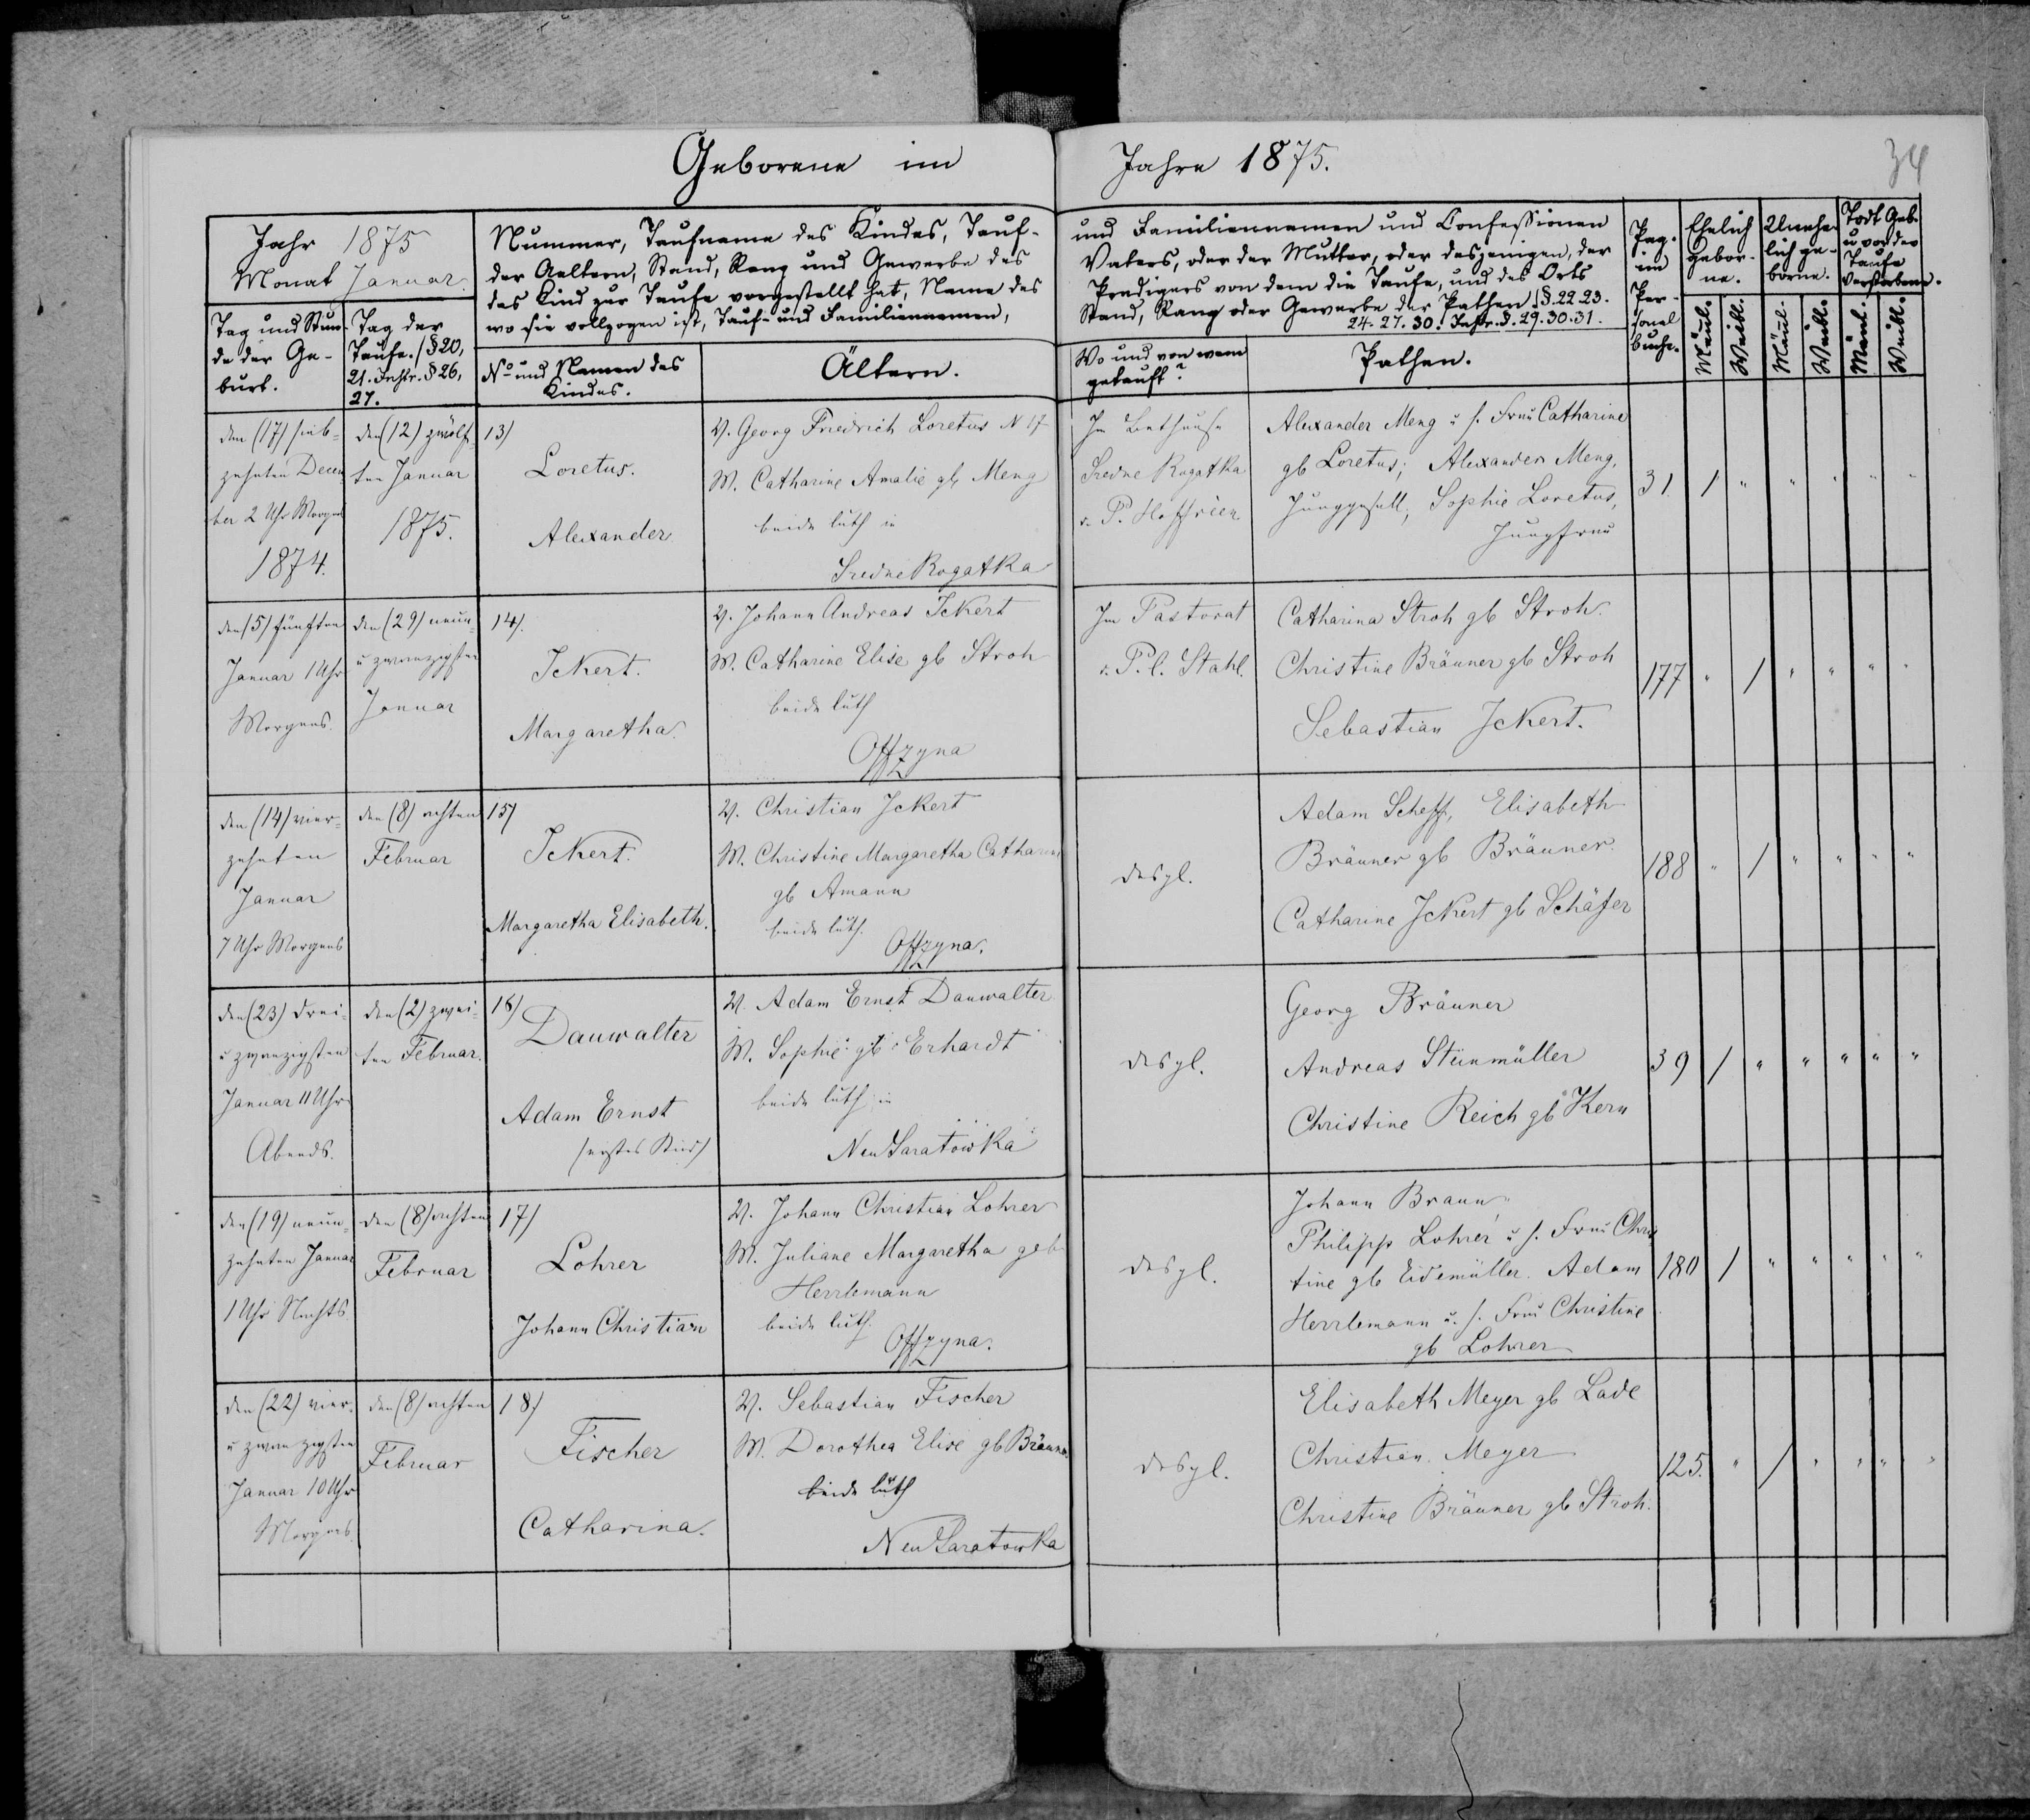 Geborene im Jahre 1875.
34
Jahr 1875
Monat Januar.
Tag und Stun-
de der Ge-
burt.
Tag der
Taufe. /§20,
21. Instr. §26,
27.
Nummer, Taufname des Kindes, Tauf-
der Aeltern, Stand, Rang und Gewerbe des
das Kind zur Taufe vorgestellt hat, Name des
wo sie vollzogen ist, Tauf- und Familiennamen,
No und Namen des
Kindes.
Ältern.
und Familiennamen und Confessionen
Vaters, oder der Mutter, oder desjenigen, der
Predigers von dem die Taufe, und des Orts
Stand, Rang oder Gewerbe der Pathen. /§.22.23.
24. 27. 30. Instr. §. 29. 30. 31.
Wo und von wem
getauft?
Pathen.
Pag.
im
Per-
sonal
buche.
Ehelich
gebor-
ne.
Unehe-
lich ge-
borne.
Todt Geb.
u vor der
Taufe
verstorbene.
Mänl.
Weibl.
Mänl.
Weibl.
Mänl.
Weibl.
den (17) sieb-
zehnten Decem
ber 2 Uhr Morgens
1874.
den (12) zwölf-
ten Januar
1875.
13)
Loretus.
Alexander
V. Georg Friedrich Loretus N 17
M. Catharine Amalie gb Meng
beide luth in
Sredne Rogatka
Im Bethause
Sredne Rogatka
v. P. Hoffrien
Alexander Meng u s. Frau Catharine
gb Loretus; Alexander Meng,
Junggesell, Sophie Loretus,
Jungfrau
31. / " " " " "
den (5) fünften
Januar 1 Uhr
Morgens
den (29) neun-
u zwanzigsten
Januar
14).
Ickert.
Margaretha.
V. Johann Andreas Ickert
M. Catharine Elise gb Stroh
beide luth
Offzyna
Im Pastorat
v. P. l. Stahl.
Catharina Stroh gb Stroh
Christine Bräuner gb Stroh
Sebastian Ickert.
177 " / " " " "
den (14) vier-
zehnten
Januar
7 Uhr Morgens
den (8) achten
Februar
15)
Ickert.
Margaretha Elisabeth.
V. Christian Ickert
M. Christine Margaretha Catharine
gb Amann
beide luth.
Offzyna.
desgl.
Adam Scheff, Elisabeth
Bräuner gb Bräuner.
Catharine Ickert gb Schäfer
188 " / " " " "
den (23) drei-
u zwanzigsten
Januar 11 Uhr
Abends.
den (2) zwei-
ten Februar.
16)
Dauwalter
Adam Ernst
(erstes Kind)
V. Adam Ernst Dauwalter
M. Sophie gb Erhardt
beide luth in
Neu Saratowka
desgl.
Georg Bräuner
Andreas Steinmüller
Christine Reich gb Kern
39 / " " " " "
den (19) neun-
zehnten Januar
1 Uhr Nachts
den (8) achten
Februar
17)
Lohrer
Johann Christian
V. Johann Christian Lohrer
M. Juliane Margaretha geb
Herrlemann
beide luth.
Offzyna.
desgl.
Johann Braun,
Philipp Lohrer u s. Frau Chris
tine gb Eidemüller. Adam
Herrlemann u. s. Frau Christine
gb Lohrer
180 / " " " " "
den (22) vier-
u zwanzigsten
Januar 10 Uhr
Morgens.
den (8) achten
Februar
18)
Fischer
Catharina.
V. Sebastian Fischer
M. Dorothea Elise gb Bräuner
beide luth
Neu Saratowka
desgl.
Elisabeth Meyer gb Lade
Christian Meyer
Christine Bräuner gb Stroh.
125. " / " " " "